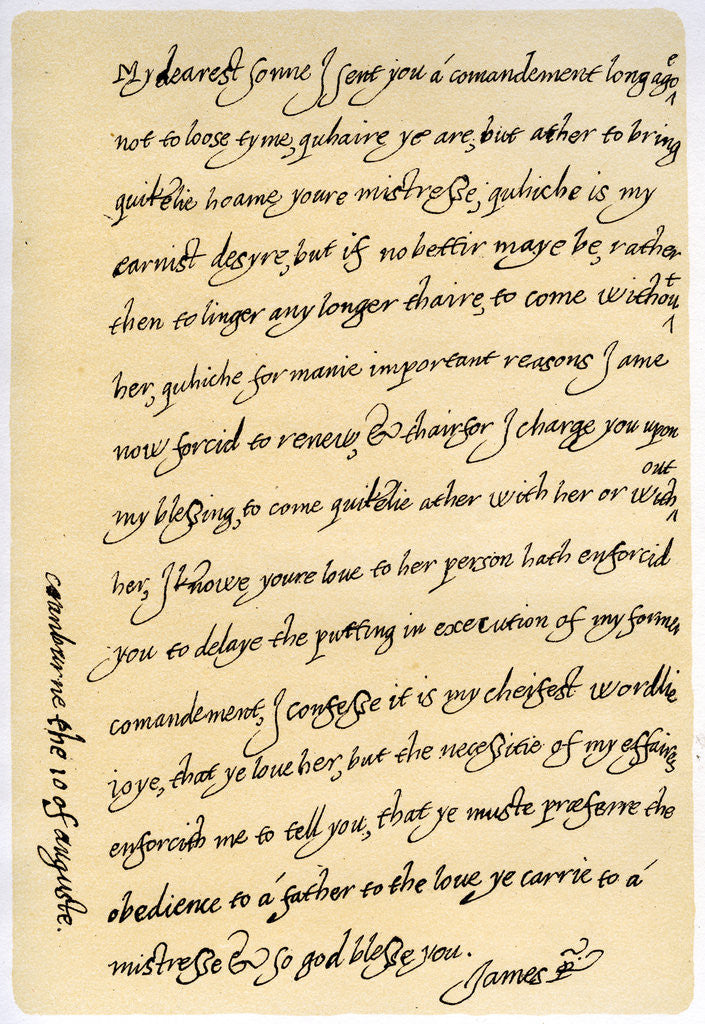 My dearest sonne I sent you á comandement long agoe
not to loose tyme, quhaire ye are, but ather to bring
quikelie hoame youre mistresse, quhiche is my
earnist desyre, but if no bettir maye be, rather
then to linger any longer thaire, to come without
her, quhiche for manie important reasons I ame
now forcid to renew, & thairfor I charge you upon
my blessing, to come quikelie ather with her or without
her, I knowe youre love to her person hath enforcid
you to delaye the putting in execution of my former
comandement, I confesse it is my cheifest wordlie
ioye, that ye love her, but the necessitie of my effaires
enforcith me to tell you, that ye muste præferre the
obedience to á father to the love ye carrie to á
mistresse & so god blesse you.
James R
cranburne the 10 of auguste.